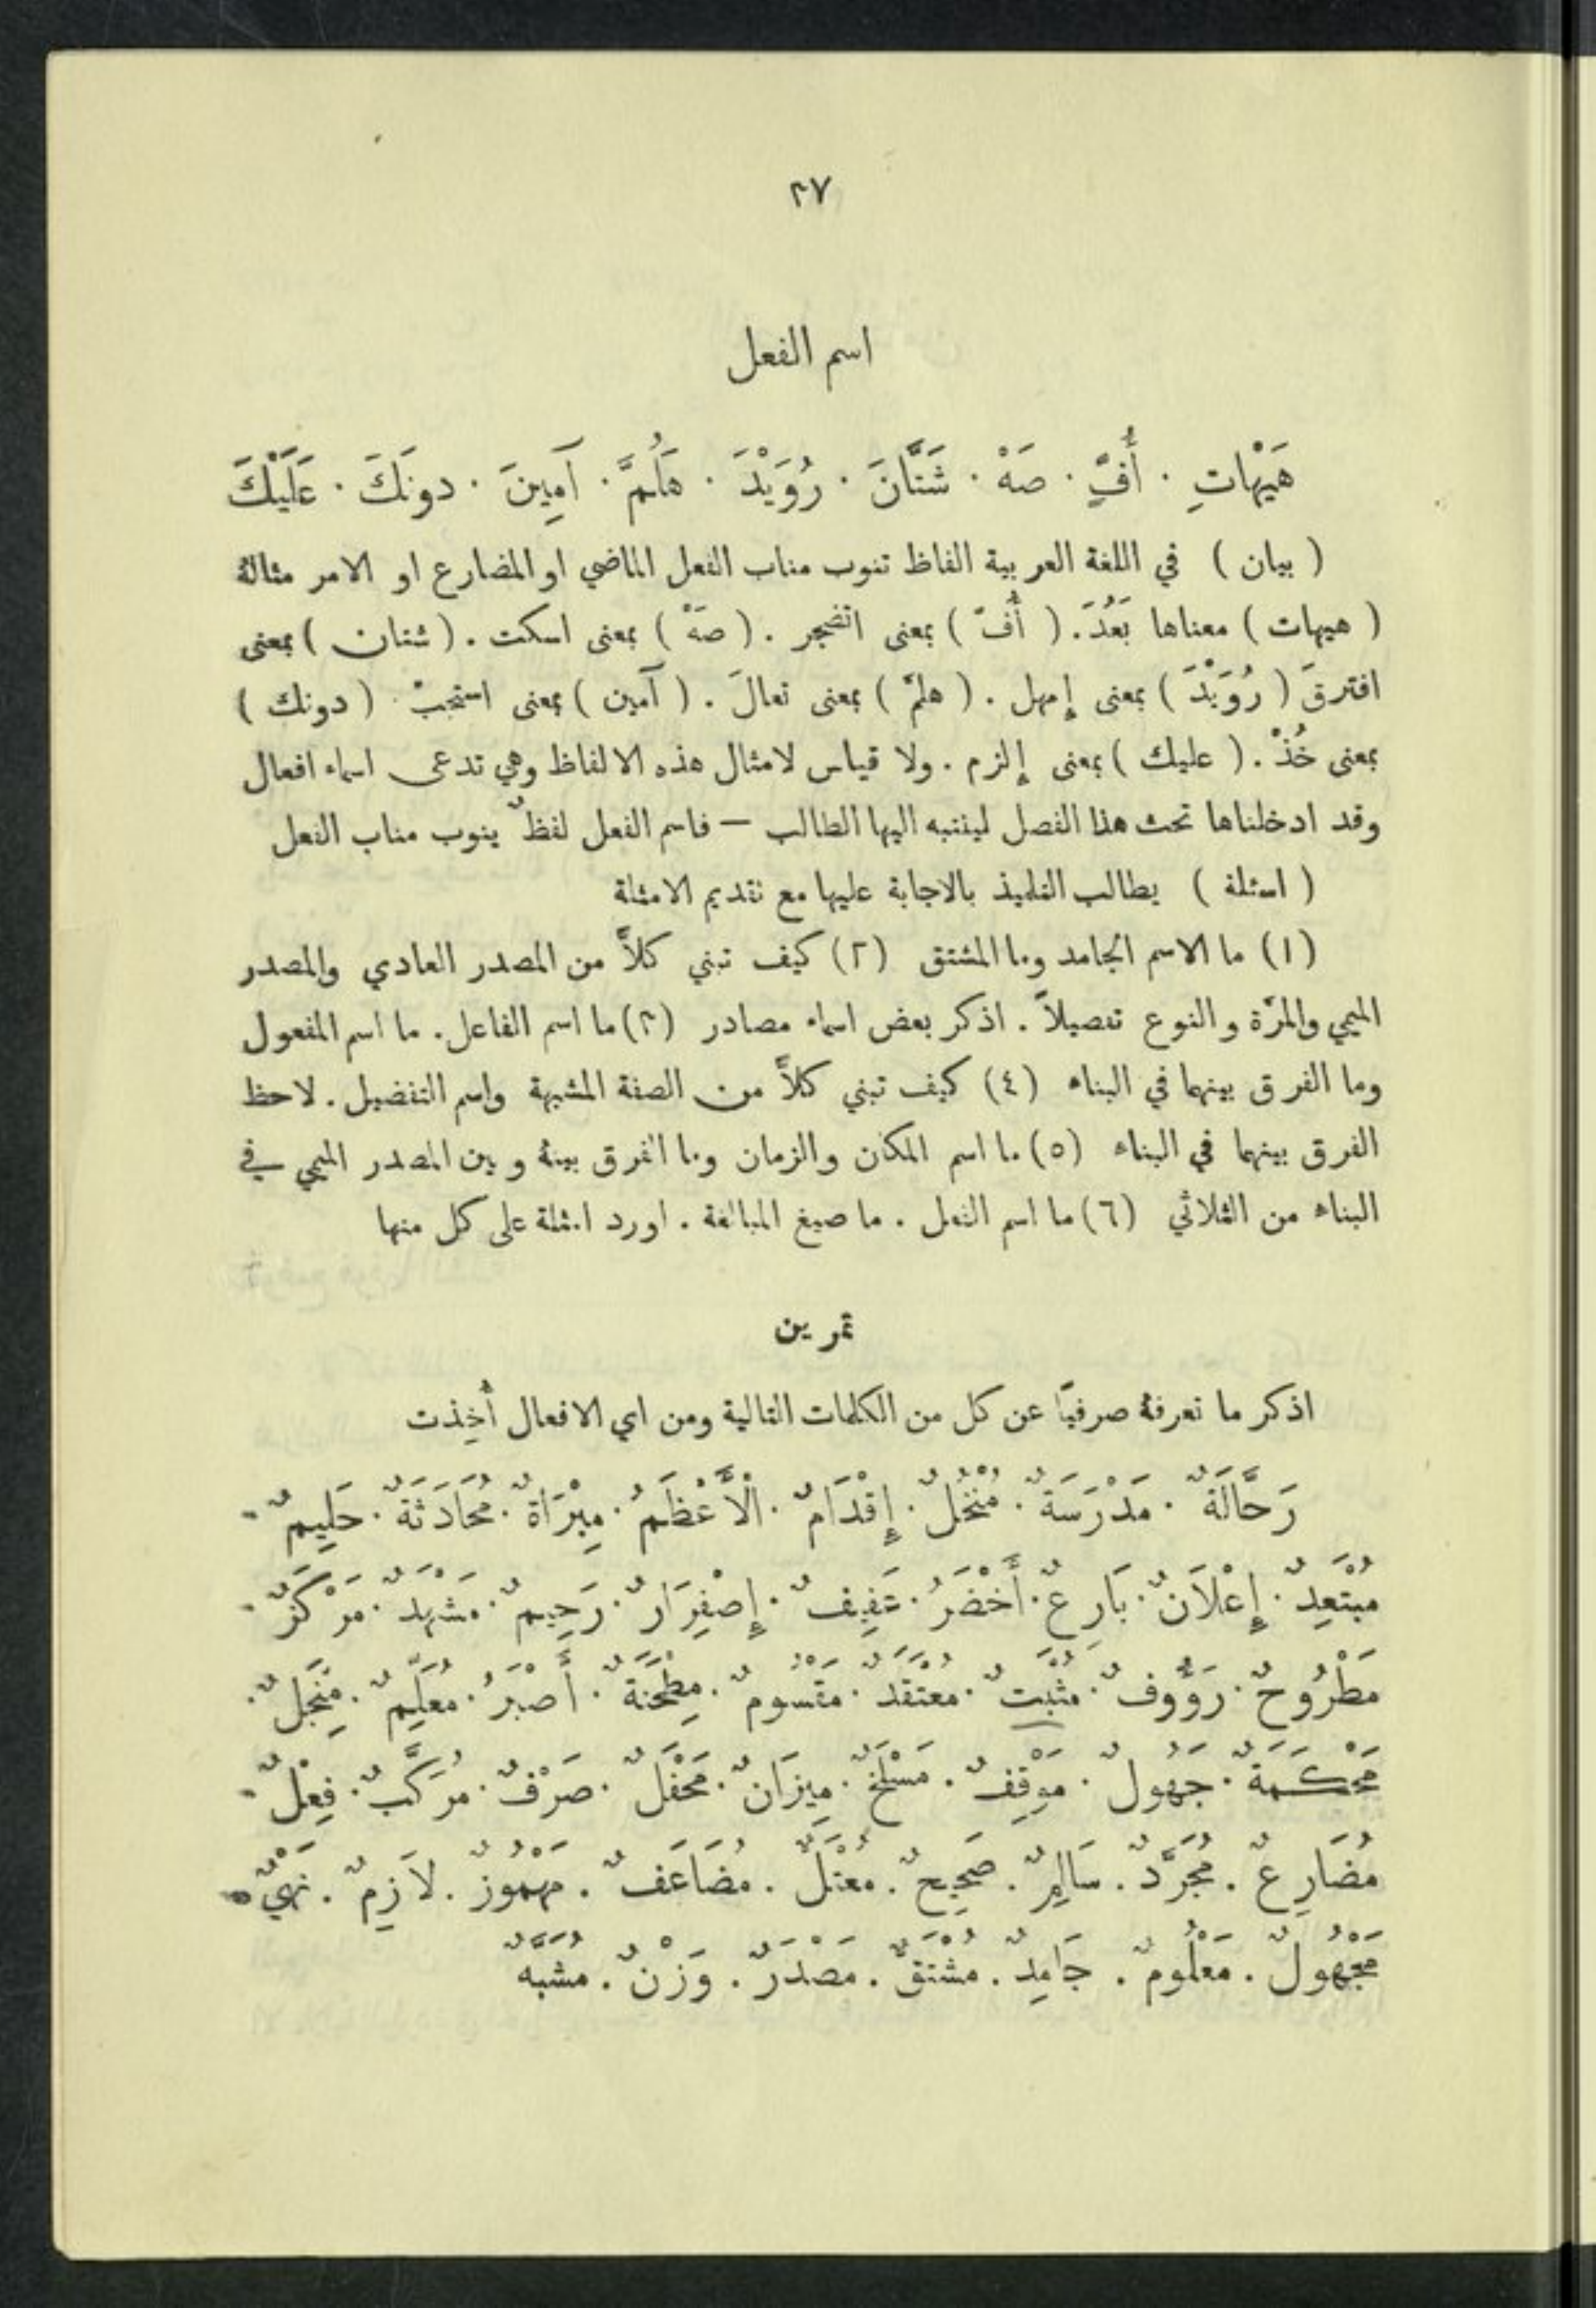 ٣٧
اسم الفعل
هَيْهَاتِ ٠ أُفٍّ ٠ صَهْ ٠ شَتَّانَ ٠ رُوَيْدَ ٠ هَلُمَّ ٠ آمِينَ ٠ دونَكَ ٠ عَلَيْكَ
( بيان ) في اللغة العربية الفاظ تنوب مناب الفعل الماضي او المضارع او الامر مثالهُ
( هيهات ) معناها بَعُدَ. ( أُفّ ) بمعنى اتضجر . ( صَهْ ) بمعنى اسكت . ( شتان ) بمعنى
افترقَ ( رُوَيْدَ ) بمعنى إمهل . ( هلمّ ) بمعنى تعالَ . ( آمين ) بمعنى استجبْ ( دونك )
بمعنى خُذْ . ( عليك ) بمعنى إلزم . ولا قياس لامثال هذه الالفاظ وهي تدعى اسماء افعال
وقد ادخلناها تحت هذا الفصل ليتنبه اليها الطالب — فاسم الفعل لفظٌ ينوب مناب الفعل
( اسئلة ) يطالب التلميذ بالاجابة عليها مع تقديم الامثلة
(١) ما الاسم الجامد وما المشتق (٢) كيف تبني كلاًّ من المصدر العادي والمصدر
الميمي والمرّة والنوع تفصيلاً . اذكر بعض اسماء مصادر (٣) ما اسم الفاعل . ما اسم المفعول
وما الفرق بينهما في البناء (٤) كيف تبني كلاًّ من الصفة المشبهة واسم التفضيل . لاحظ
الفرق بينهما في البناء (٥) ما اسم المكان والزمان وما الفرق بينهُ وبين المصدر الميمي في
البناء من الثلاثي (٦) ما اسم الفعل . ما صيغ المبالغة . اورد امثلة على كل منها
تمرين
اذكر ما تعرفهُ صرفيًّا عن كل من الكلمات التالية ومن اي الافعال أُخِذت
رَحَّالَةٌ ٠ مَدْرَسَةٌ ٠ مُنْخُلٌ ٠ إِقْدَامٌ ٠ الْأَعْظَمُ ٠ مِبْرَاةٌ ٠ مُحَادَثَةٌ ٠ حَلِيمٌ ٠
مُبْتَعِدٌ ٠ إِعْلَانٌ ٠ بَارِعٌ ٠ أَخْضَرُ ٠ عَفِيفٌ ٠ إِصْفِرَارٌ ٠ رَحِيمٌ ٠ مَشْهَدٌ ٠ مَرْكَزٌ ٠
مَطْرُوحٌ ٠ رَؤُوفٌ ٠ مُثْبَتٌ ٠ مُعْتَقَدٌ ٠ مَقْسُومٌ ٠ مِطْحَنَةٌ ٠ أَصْبَرُ ٠ مُعَلِّمٌ ٠ مِنْجَلٌ ٠
مَحْكَمَةٌ ٠ جَهُولٌ ٠ مَوْقِفٌ ٠ مَسْلَخٌ ٠ مِيزَانٌ ٠ مَحْفَلٌ ٠ صَرْفٌ ٠ مُرَكَّبٌ ٠ فِعْلٌ ٠
مُضَارِعٌ . مُجَرَّدٌ . سَالِمٌ . صَحِيحٌ . مُعْتَلٌّ . مُضَاعَفٌ . مَهْمُوزٌ . لاَزِمٌ . نَهْيٌ .
مَجْهُولٌ . مَعْلُومٌ . جَامِدٌ . مُشْتَقٌّ . مَصْدَرٌ . وَزْنٌ . مُشَبَّهٌ